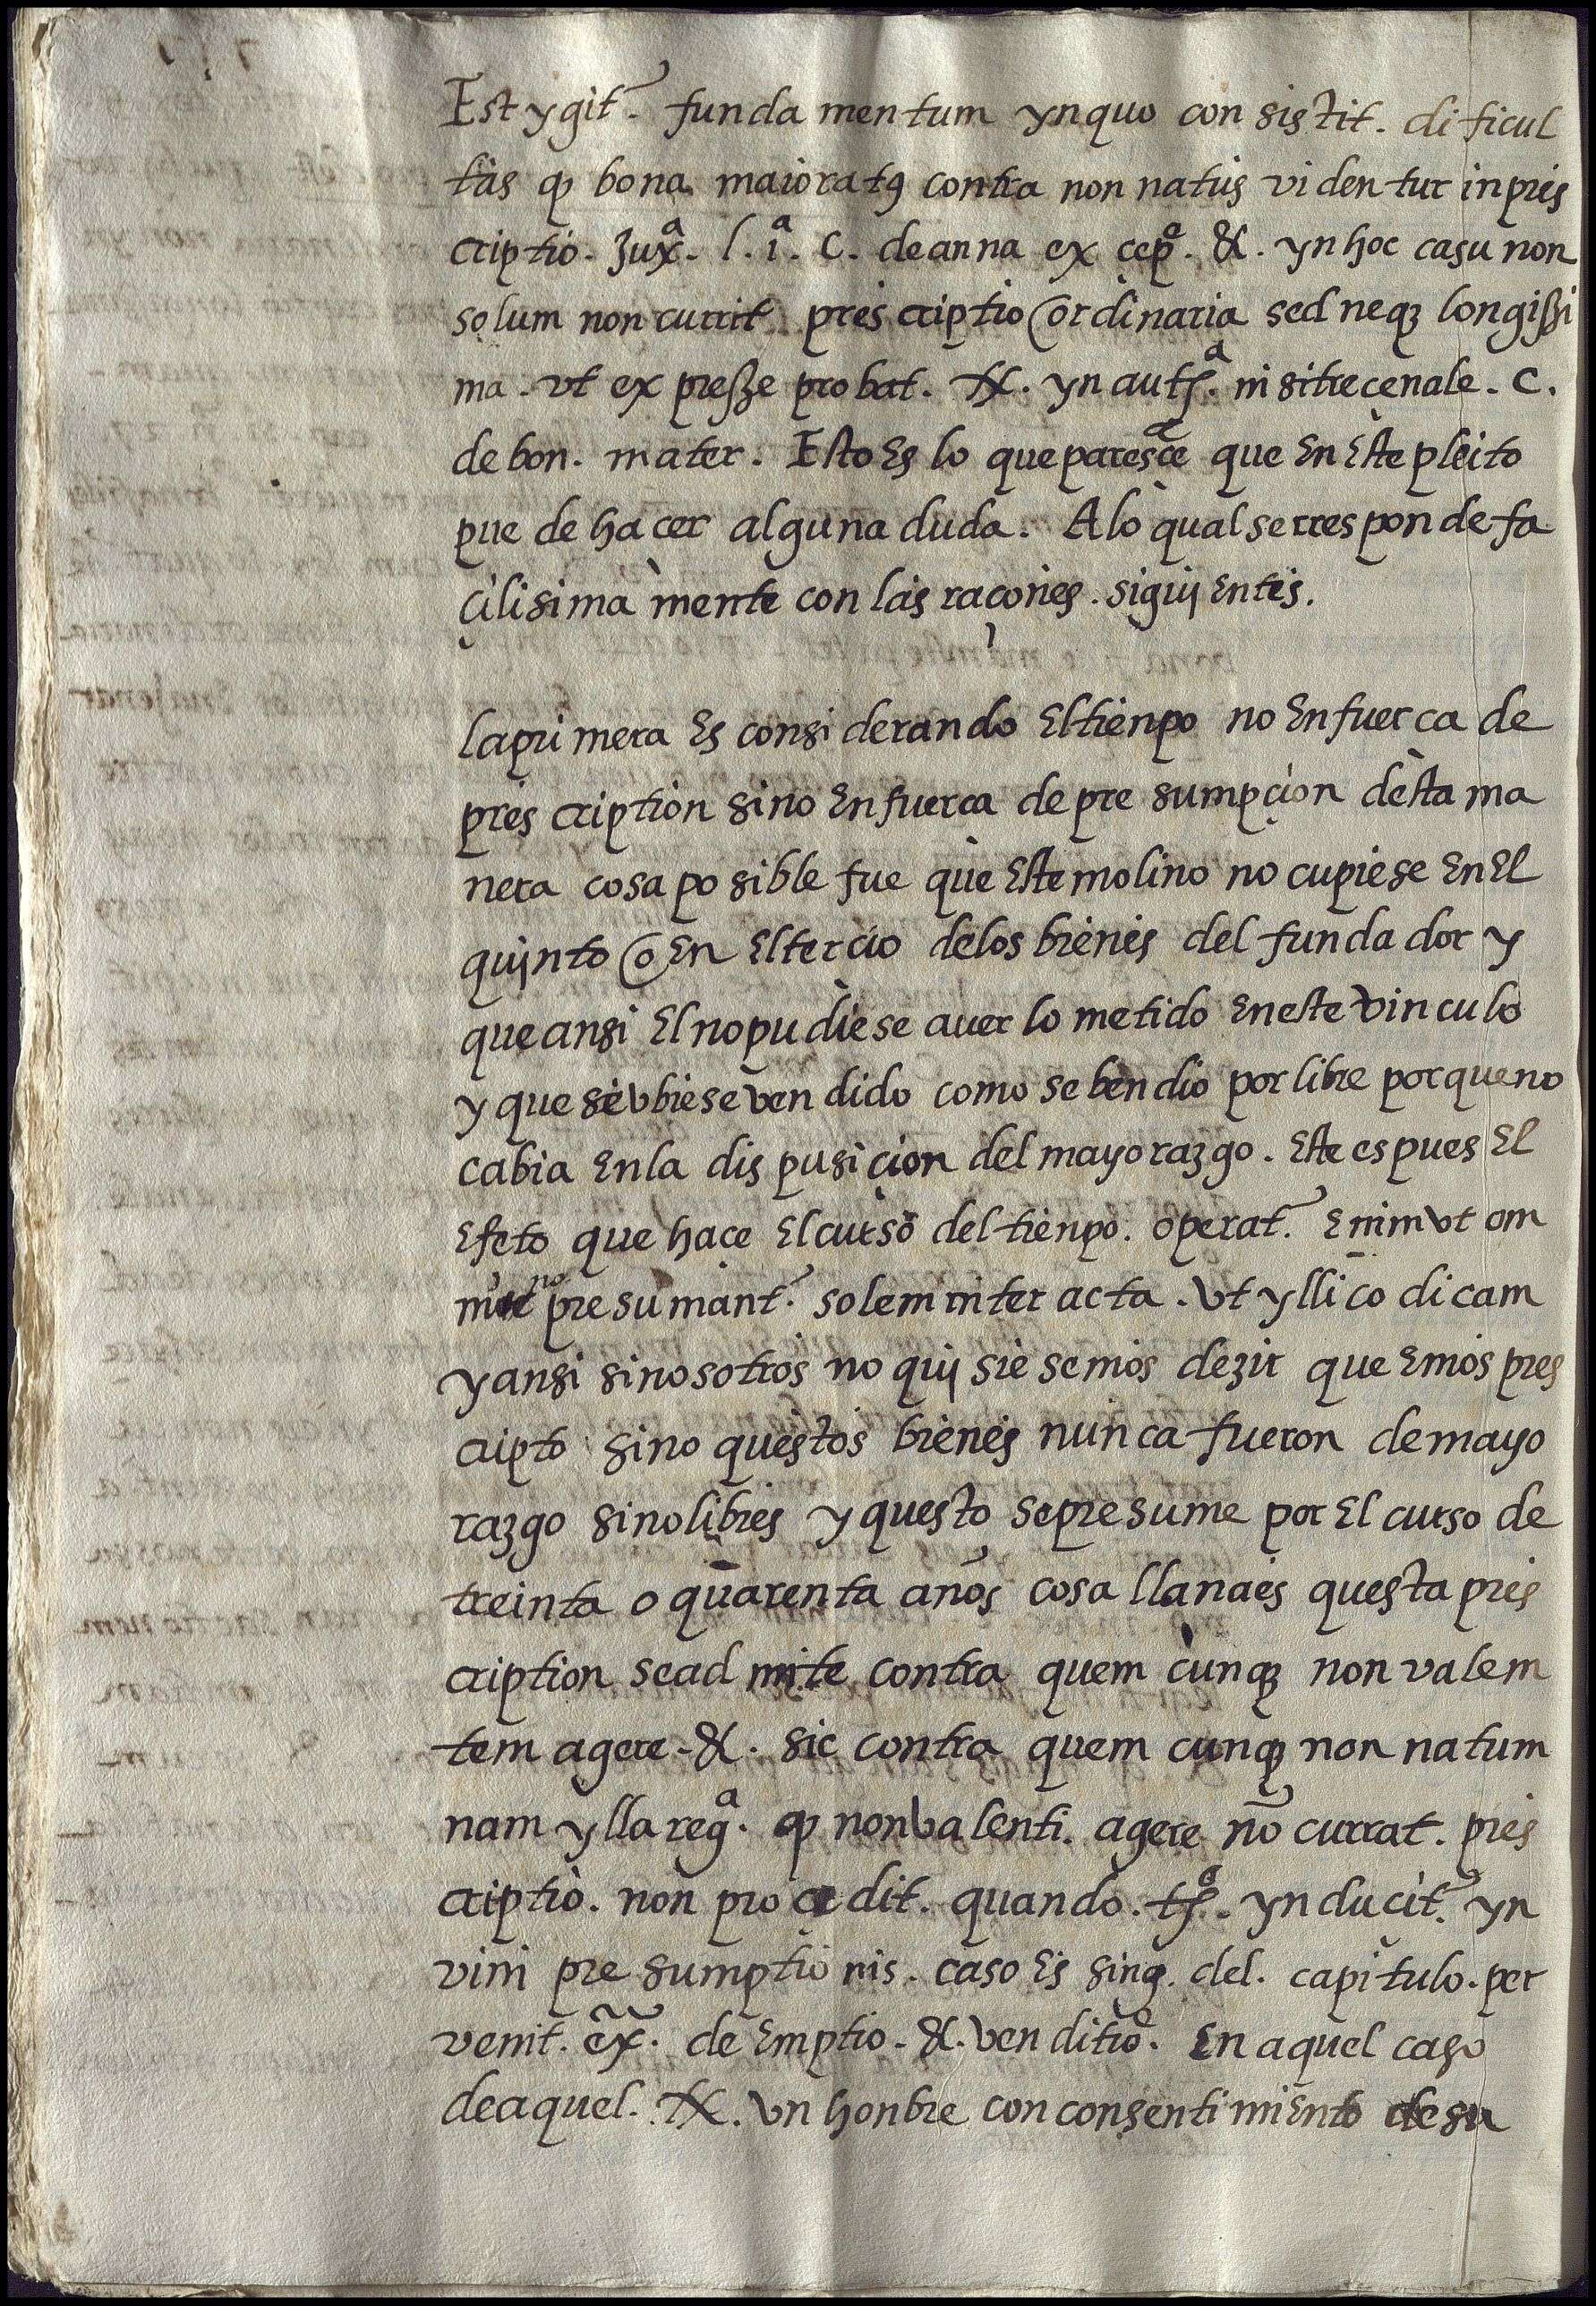 Est ygit~. fundamentum ynquo consistit. dificul
tas q̃ bona maioratꝯ contra non natus videntur inpres
criptio. Juxᵃ. l. iᵃ. C. de anna excepᵃ. &. yn hoc casu non
solum non currit prescriptio ordinaria sed neqꝫ longissi
ma. vt expresse probat. tx. yn autᵃ. nisi trecenale. C.
de bon. mater. Esto Es lo que paresce que En Este pleito
puede hacer alguna duda. Alo qual se rresponde fa
çilisima mente con las raçones. siguientes.
la primera Es considerando El tienpo no En fuerca de
prescription sino En fuerca de presumpçion desta ma
nera cosa posible fue que Este molino no cupiese En El
quinto o En El tercio delos bienes del fundador y
que ansi El no pudiese auerlo metido En este vinculo
y que se vbiese vendido como se bendio por libre porque no
cabia En la dispusiçion del mayorazgo. Este es pues El
Efeto que hace El curso del tienpo. operat~. Enim vt om
nino presumant~. solemniter acta. vt yllico dicam
y ansi si nosotros no quisiesemos dezir que Emos pres
cripto sino questos bienes nunca fueron de mayo
razgo sino libres y questo se presume por El curso de
treinta o quarenta años cosa llana es questa pres
cription se admite contra quem cunqꝫ non valem
tem agere. &. sic contra quem cunqꝫ non natum
nam ylla regᵃ. q̃ non valenti. agere nõ currat. pres
criptio. non procedit. quando. tᵃ. ynducit~. yn
vim presumptionis. caso Es sing. del. capitulo. per
venit. ex̃. de Emptio. &. venditio. En aquel caso
de aquel. tx. vn honbre con consentimiEnto de su